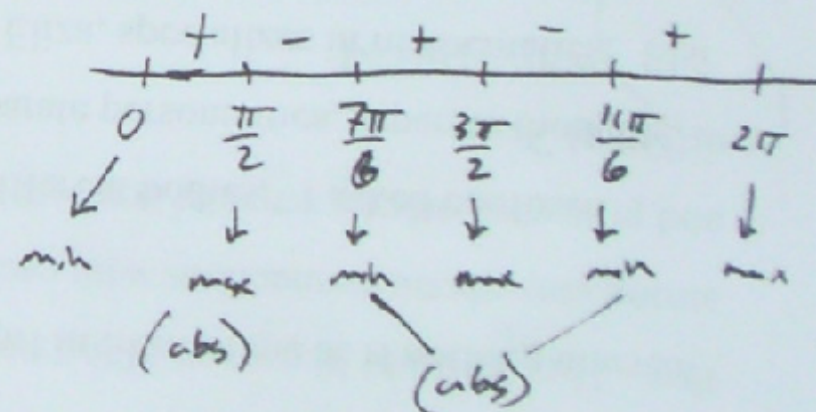 + − + − +
0 π/2 7π/6 3π/2 11π/6 2π
min max min max min max
(abs) (abs)